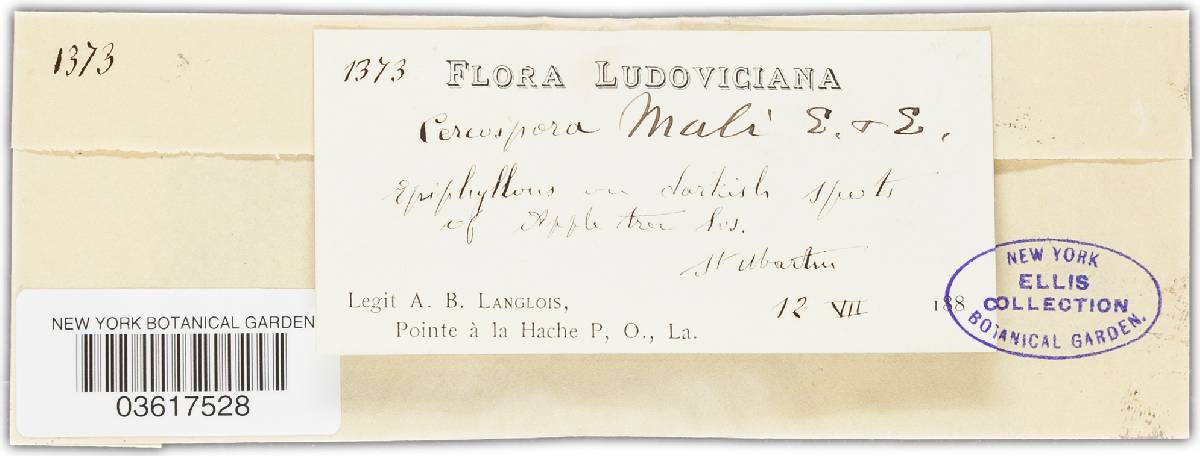 1373
1373 FLORA LUDOVICIANA
Cercospora Mali E. & E.
Epiphyllous on darkish spots
of Apple tree lvs.
St Martin
Legit A. B. LANGLOIS,
12 VII 188
Pointe à la Hache P, O., La.
NEW YORK
ELLIS
COLLECTION
BOTANICAL GARDEN.
NEW YORK BOTANICAL GARDEN
03617528